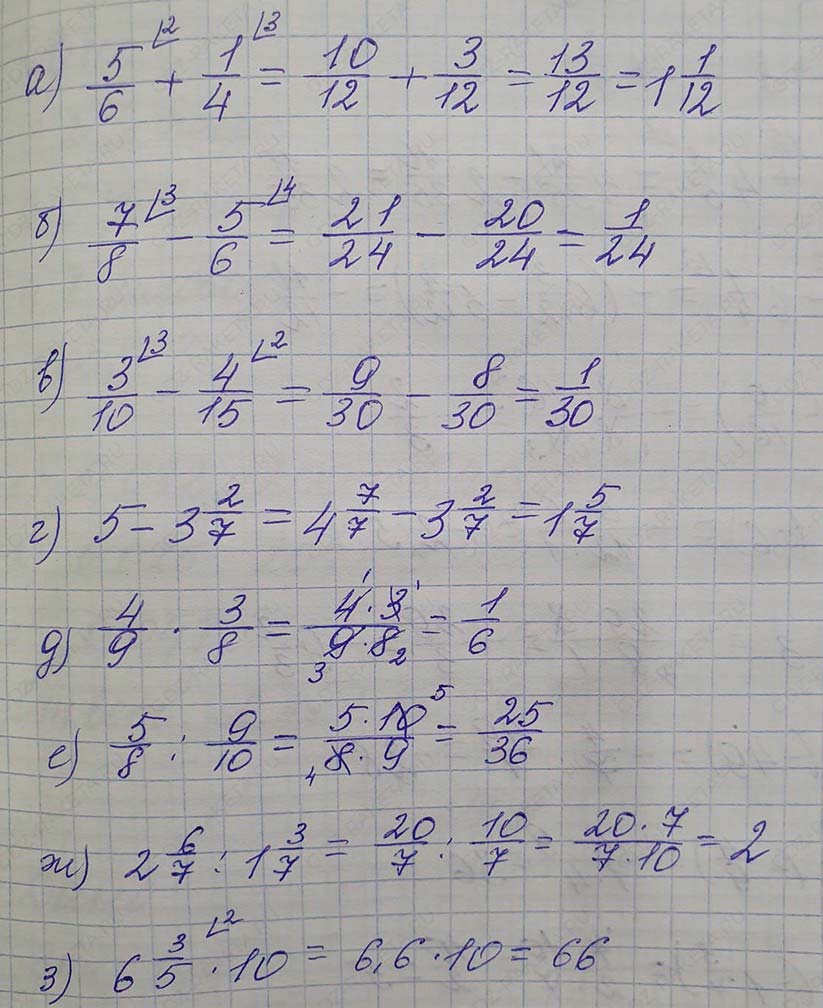 а) 5/6 ⌊2 + 1/4 ⌊3 = 10/12 + 3/12 = 13/12 = 1 1/12
б) 7/8 ⌊3 - 5/6 ⌊4 = 21/24 - 20/24 = 1/24
в) 3/10 ⌊3 - 4/15 ⌊2 = 9/30 - 8/30 = 1/30
г) 5 - 3 2/7 = 4 7/7 - 3 2/7 = 1 5/7
д) 4/9 · 3/8 = 4 1 · 3 1 / 9 3 · 8 2 = 1/6
е) 5/8 : 9/10 = 5 · 10 5 / 8 4 · 9 = 25/36
ж) 2 6/7 : 1 3/7 = 20/7 : 10/7 = 20 · 7 / 7 · 10 = 2
з) 6 3/5 ⌊2 · 10 = 6,6 · 10 = 66